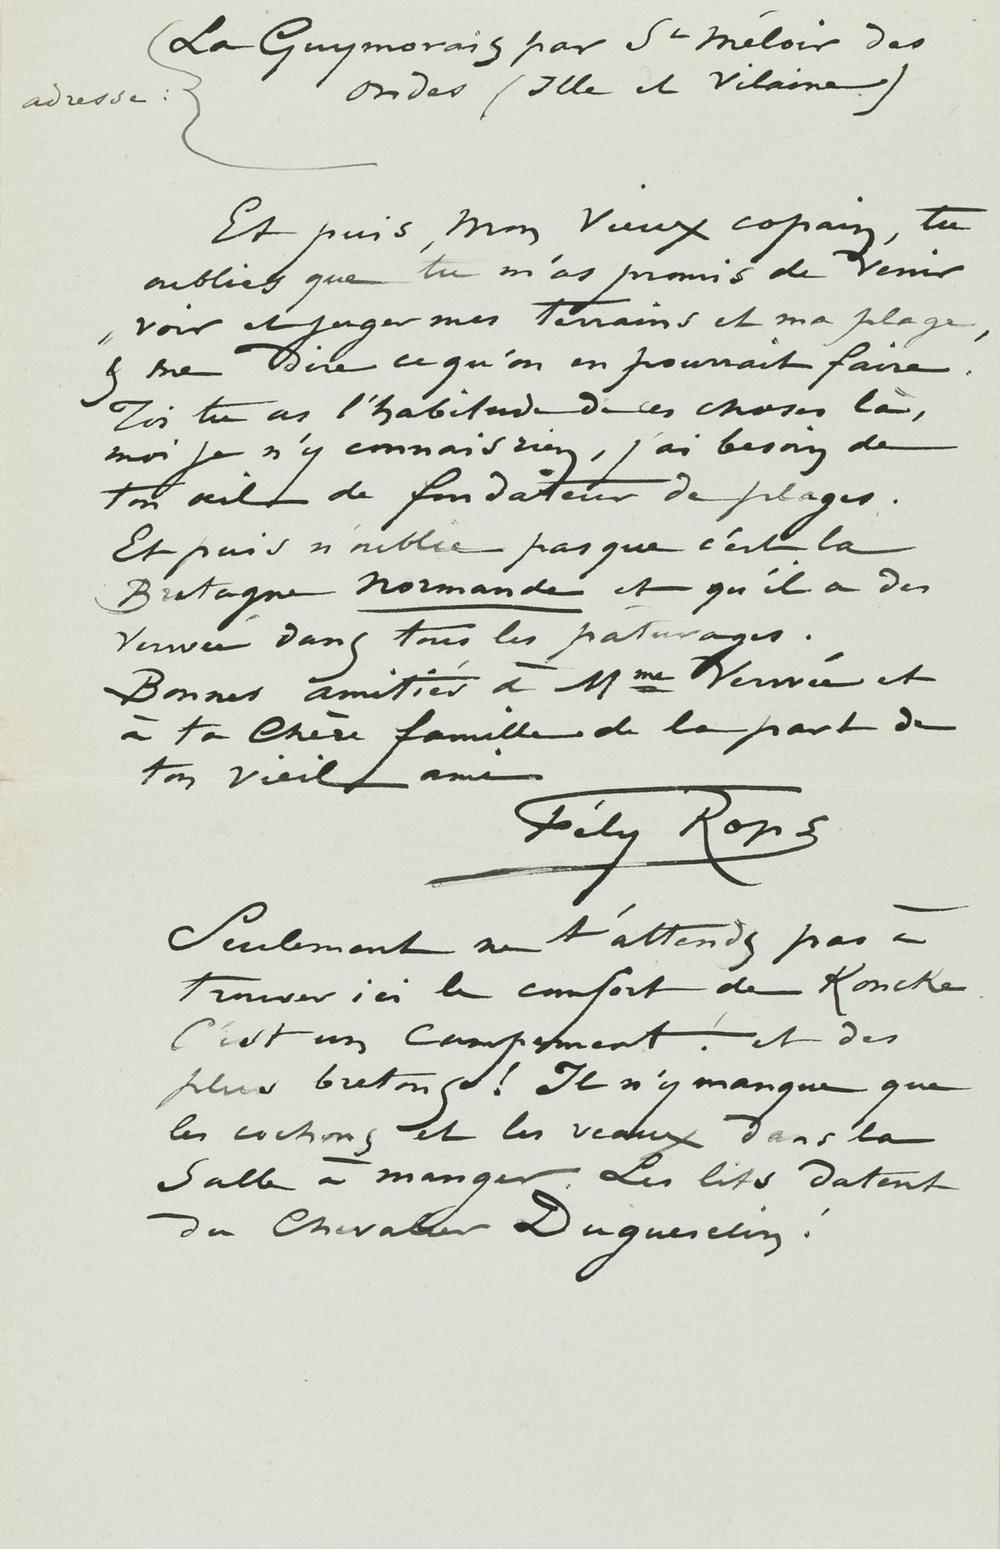 (La Guymorais par St Méloir des
adresse : ondes (Ille et Vilaine)
Et puis, Mon Vieux copain, tu
oublies que tu m'as promis de Venir
voir et juger mes terrains et ma plage,
& me Dire ce qu'on en pourrait faire.
Toi tu as l'habitude de ces choses là,
moi je n'y connais rien, j'ai besoin de
ton œil de fondateur de plages.
Et puis n'oublie pas que c'est la
Bretagne Normande et qu'il a des
Verwée dans tous les pâturages.
Bonnes amitiés à Mme Verwée et
à ta Chère famille de la part de
ton vieil ami
Fély Rops
Seulement ne t'attends pas à
trouver ici le confort de Koncke
C'est un Campement ! et des
plus bretons ! Il n'y manque que
les cochons et les veaux dans la
Salle à manger. Les lits datent
du Chevalier Duguesclin !